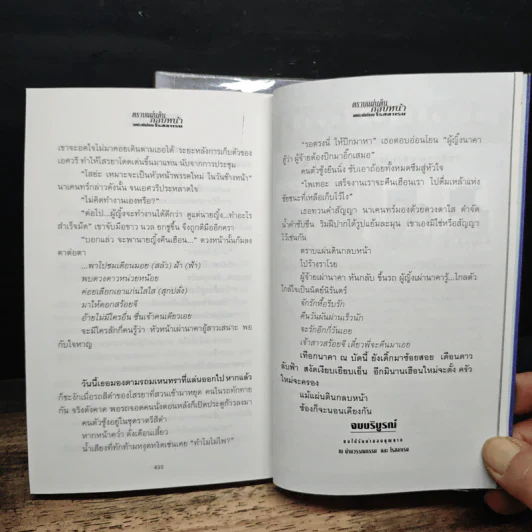 ตราบแผ่นดิน
กลบหน้า
เขาจะอดใจไม่ไม่มาคอยเดินตามเธอได้ ระยะหลังการเก็บตัวของ
เอควรี ทำให้โสรยาโดดเด่นขึ้นมาแทน นับจากการประชุม
"โสย่ะ เหมาะจะเป็นหัวหน้าพรรคใหม่ ในวันข้างหน้า"
นาคเนทรกล่าวดังนั้น จนเอควรีประหลาดใจ
"ไม่คิดทำงานเองหรือ?"
"ต่อไป...ผู้ญิ๋งจะทำงานได้ดีกว่า ดูแน่นายญิ๋ง...ทำอะไร
สำเร็จมาก" เขาจับมือขาว นวล ยกชูขึ้น จึงถูกตีมืออีกครา
"บอกแล้ว จะพานายญิ๋งคืนเฮือน..." ดวงหน้านั้นก้มลง
ตาต่อตา
...พาไปชมเดือนมอย (สลัว) ฟ้า (ฟ้า)
พบดวงดาวหน่วยหน้อย
ค่อยเลือกเอาแก่นไสใส (สุกปลั่ง)
มาให้ดอกสร้อยจี
อ้ายไม่มีใครอื่น ชื่นเจ้าคนเดียวเอย
จะมีใครสักกี่คนรู้ว่า หัวหน้าเผ่านาคาผู้สาวเสนาะ พอ
กับใจหาญ
วันนี้เธอมองตามรถมเหนทราที่แล่นออกไป หากแล้ว
ก็ชะงักเมื่อรถสีดำของโสรยาที่สวนเข้ามาหยุด คนในรถทักทาย
กัน จริงดังคาด พอรถจอดคนนั่งตอนหลังก็เปิดประตูก้าวลงมา
คนตัวซู้งอยู่ในชุดราตรีสีดำ
หากหน้าคว่ำ ดังเดือนเสี้ยว
น้ำเสียงที่ทักก็ามหงุดหงิดเช่นเคย "ทำไมไม่ไป?"
ตราบแผ่นดิน
กลบหน้า
"รอตรงนี่ ให้ปีกมาหา" เธอตอบอ่อนโยน "ผู้ญิ๋งนาคา
ฮู้ว่า ผู้จ้ายต้องปีกมาอิ๊กเสมอ"
คนตัวซู้งยืนนิ่ง ขับเอาถ้อยทั้งหมดซึมสู่หัวใจ
"โพเทอะ เสร็จงานเราจะคืนเฮือนเรา ไปดื่มเหล้าแห่ง
ชัยชนะที่เหลือเก็บไว้ไง"
เธอทวนคำสัญญา นาคเนทรมองด้วยดวงตาใส ดำจัด
น้ำดำซับซึ้น ริมฝีปากได้รูปแย้มละมุน เขาเองมิใช่หรือสัญญา
ไว้เช่นกัน
ตราบแผ่นดินกลบหน้า
โปร้างราโรย
ผู้จ้ายเผ่านาคา หันกลับ ขึ้นรถ ผู้ญิ๋งนาคารู้...ไกลตัว
ใกล้ใจเป็นนิตย์นิรันดร์
จักรักหื้อรีบรัก
คืนวันมันผ่านเร็วนัก
จะรักอีกกี่วันเอย
เจ้าสาวสร้อยจี เดี๋ยวพี่จะคืนมาเอย
เทือกนาคา ณ บัดนี้ ยังเดิ๊กมาช้อยสอย เดือนดาว
ดับฟ้า สงัดเงียบเยียบเย็น อีกมินานเฮือนใหม่จะตั้ง ครัว
ใหม่จะครอง
แม้แผ่นดินกลบหน้า
ข้องก็จะนอนเคียงกัน
จบบริบูรณ์